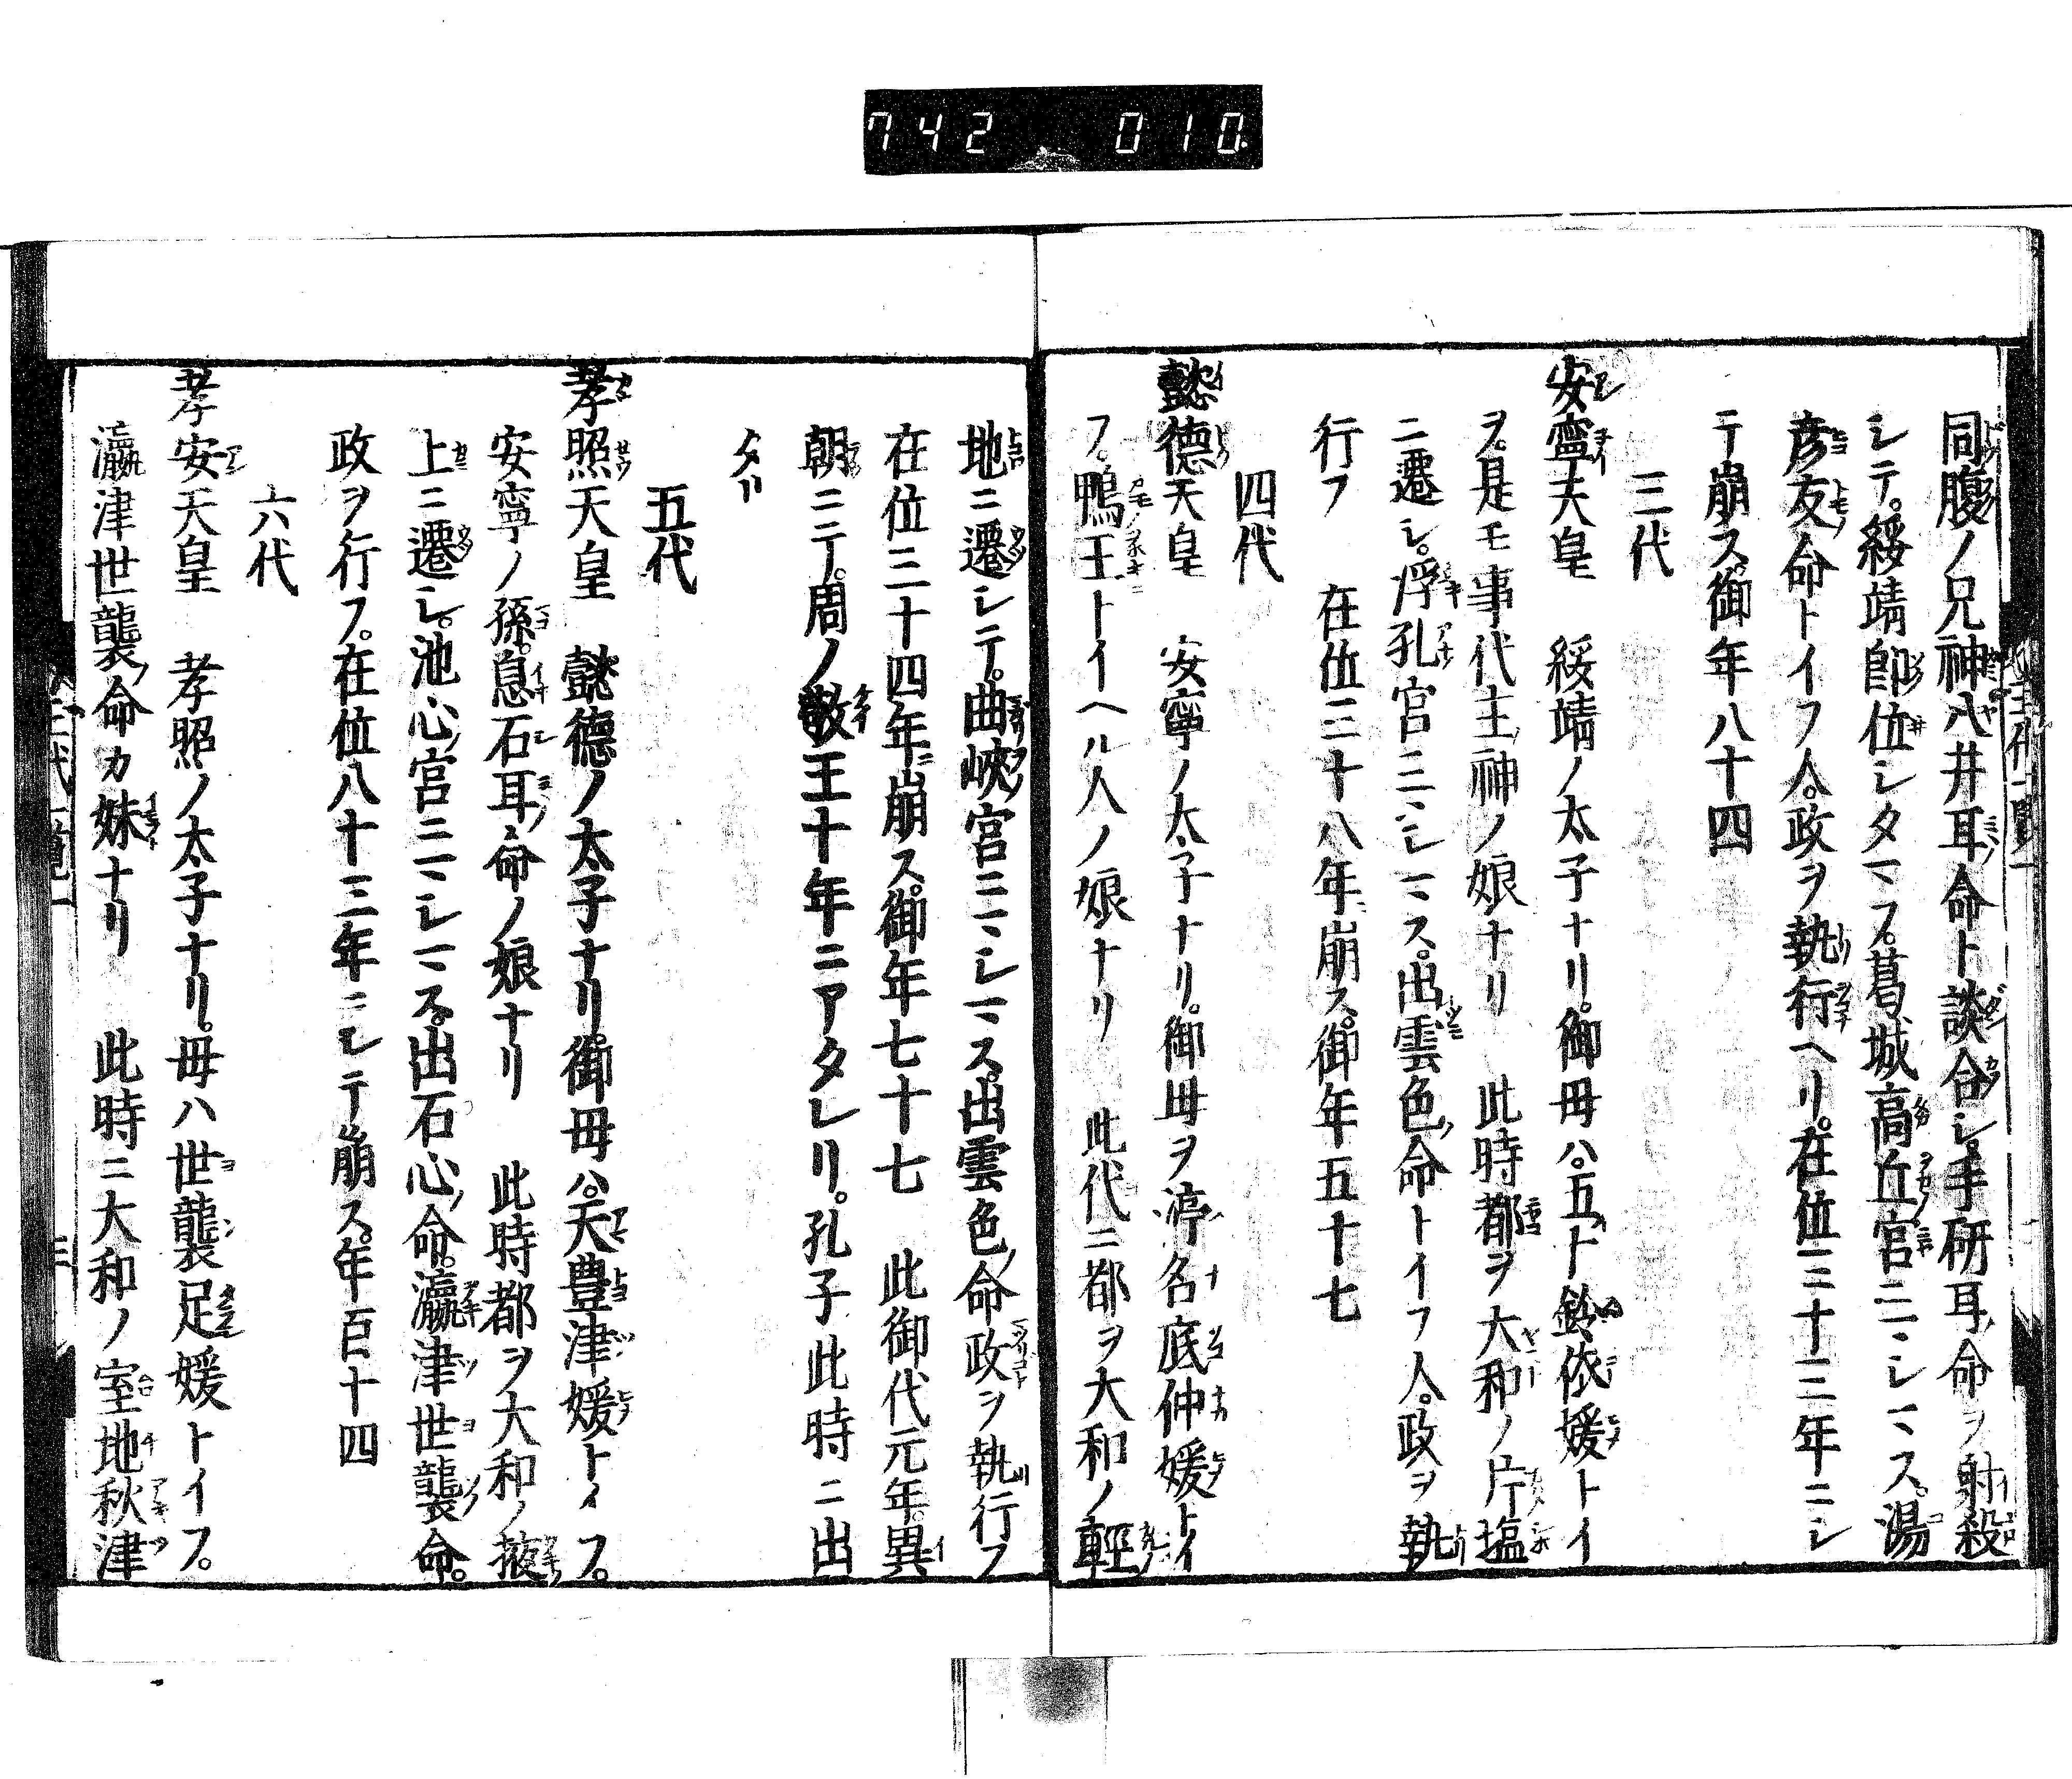 742 010
同腹ノ兄神八井耳命ト談合シ。手研耳命ヲ射殺
シテ。綏靖即位シタマフ。葛城高丘宮ニマシマス。湯
彦友命トイフ人。政ヲ執行ヘリ。在位三十三年ニシ
テ崩ス。御年八十四
三代
安寧天皇 綏靖ノ太子ナリ。御母ハ。五十鈴依媛トイ
ヲ。是モ事代主神ノ娘ナリ 此時都ヲ大和ノ片塩
ニ遷シ。浮孔宮ニマシマス。出雲色命トイフ人。政ヲ執
行フ 在位三十八年崩ス。御年五十七
四代
懿德天皇 安寧ノ太子ナリ。御母ヲ渟名底仲媛トイ
フ。鴨王トイヘル人ノ娘ナリ 此代ニ都ヲ大和ノ輕
地ニ遷シテ。曲峽宮ニマシマス。出雲色命政ヲ執行フ
在位三十四年崩ス。御年七十七 此御代元年。異
朝ニテ。周ノ敬王十年ニアタレリ。孔子此時ニ出
タリ
五代
孝照天皇 懿德ノ太子ナリ。御母ハ。天豊津媛トイフ。
安寧ノ孫。息石耳命ノ娘ナリ 此時都ヲ大和ノ掖
上ニ遷シ。池心宮ニマシマス。出石心命。瀛津世襲命。
政ヲ行フ。在位八十三年ニシテ崩ス。年百十四
六代
孝安天皇 孝照ノ太子ナリ。母ハ世襲足媛トイフ。
瀛津世襲命カ妹ナリ 此時ニ大和ノ室地秋津